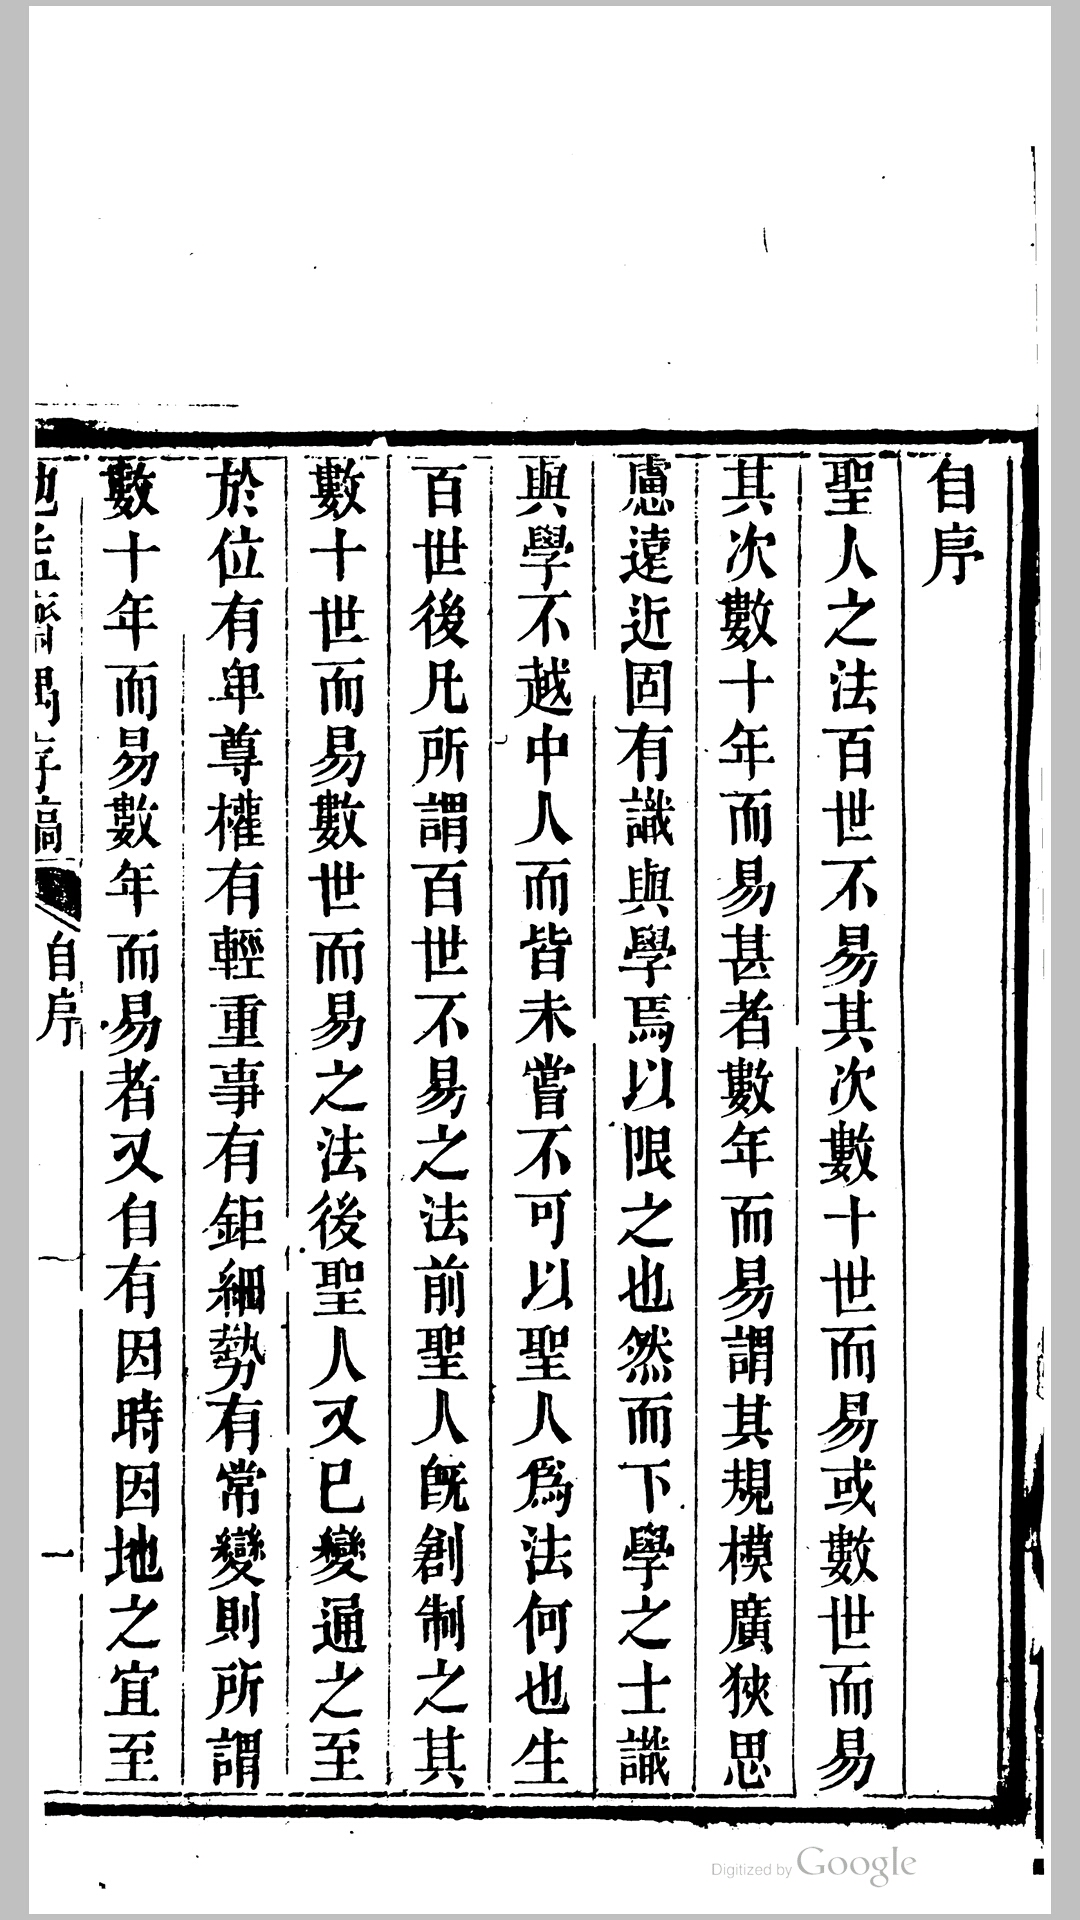 自序
聖人之法百世不易其次數十世而易或數世而易
其次數十年而易甚者數年而易謂其規模廣狹思
慮遠近固有識與學焉以限之也然而下學之士識
與學不越中人而皆未嘗不可以聖人爲法何也生
百世後凡所謂百世不易之法前聖人旣創制之其
數十世而易數世而易之法後聖人又已變通之至
於位有卑尊權有輕重事有鉅細勢有常變則所謂
數十年而易數年而易者又自有因時因地之宜至
自序
一
Digitized by Google